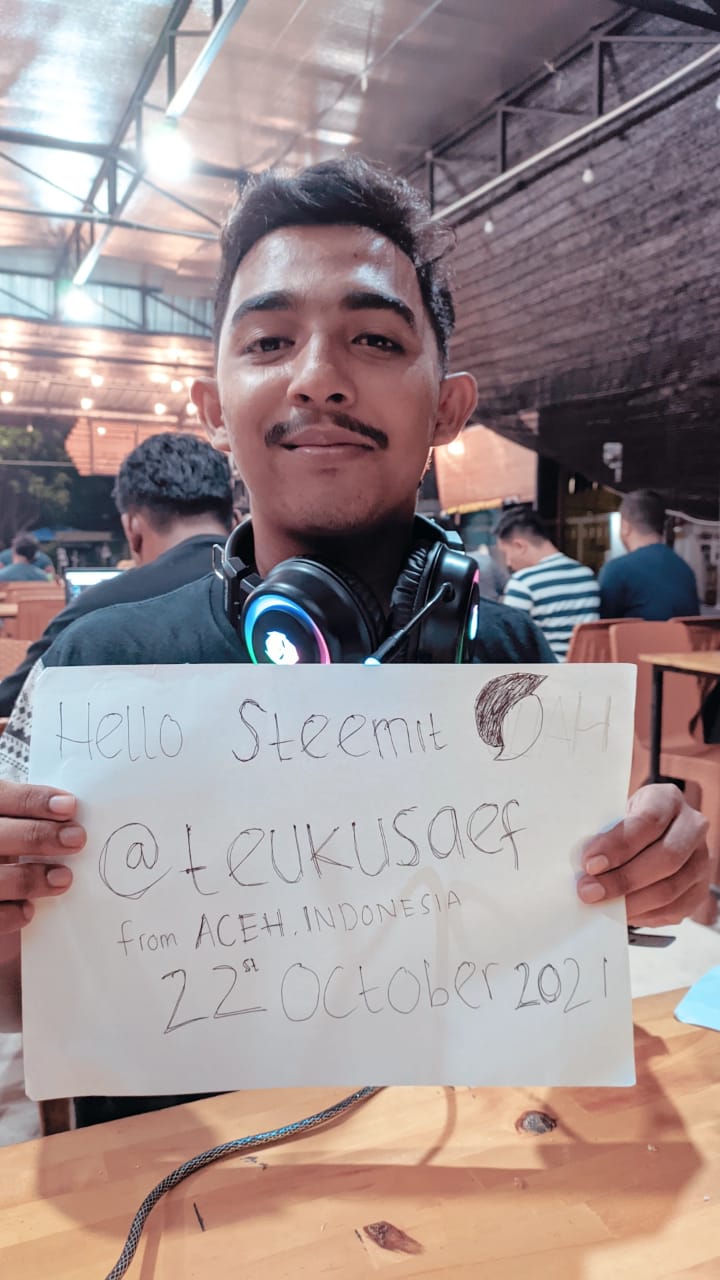 Hello Steemit
@teukusaef
from ACEH. INDONESIA
22st October 2021